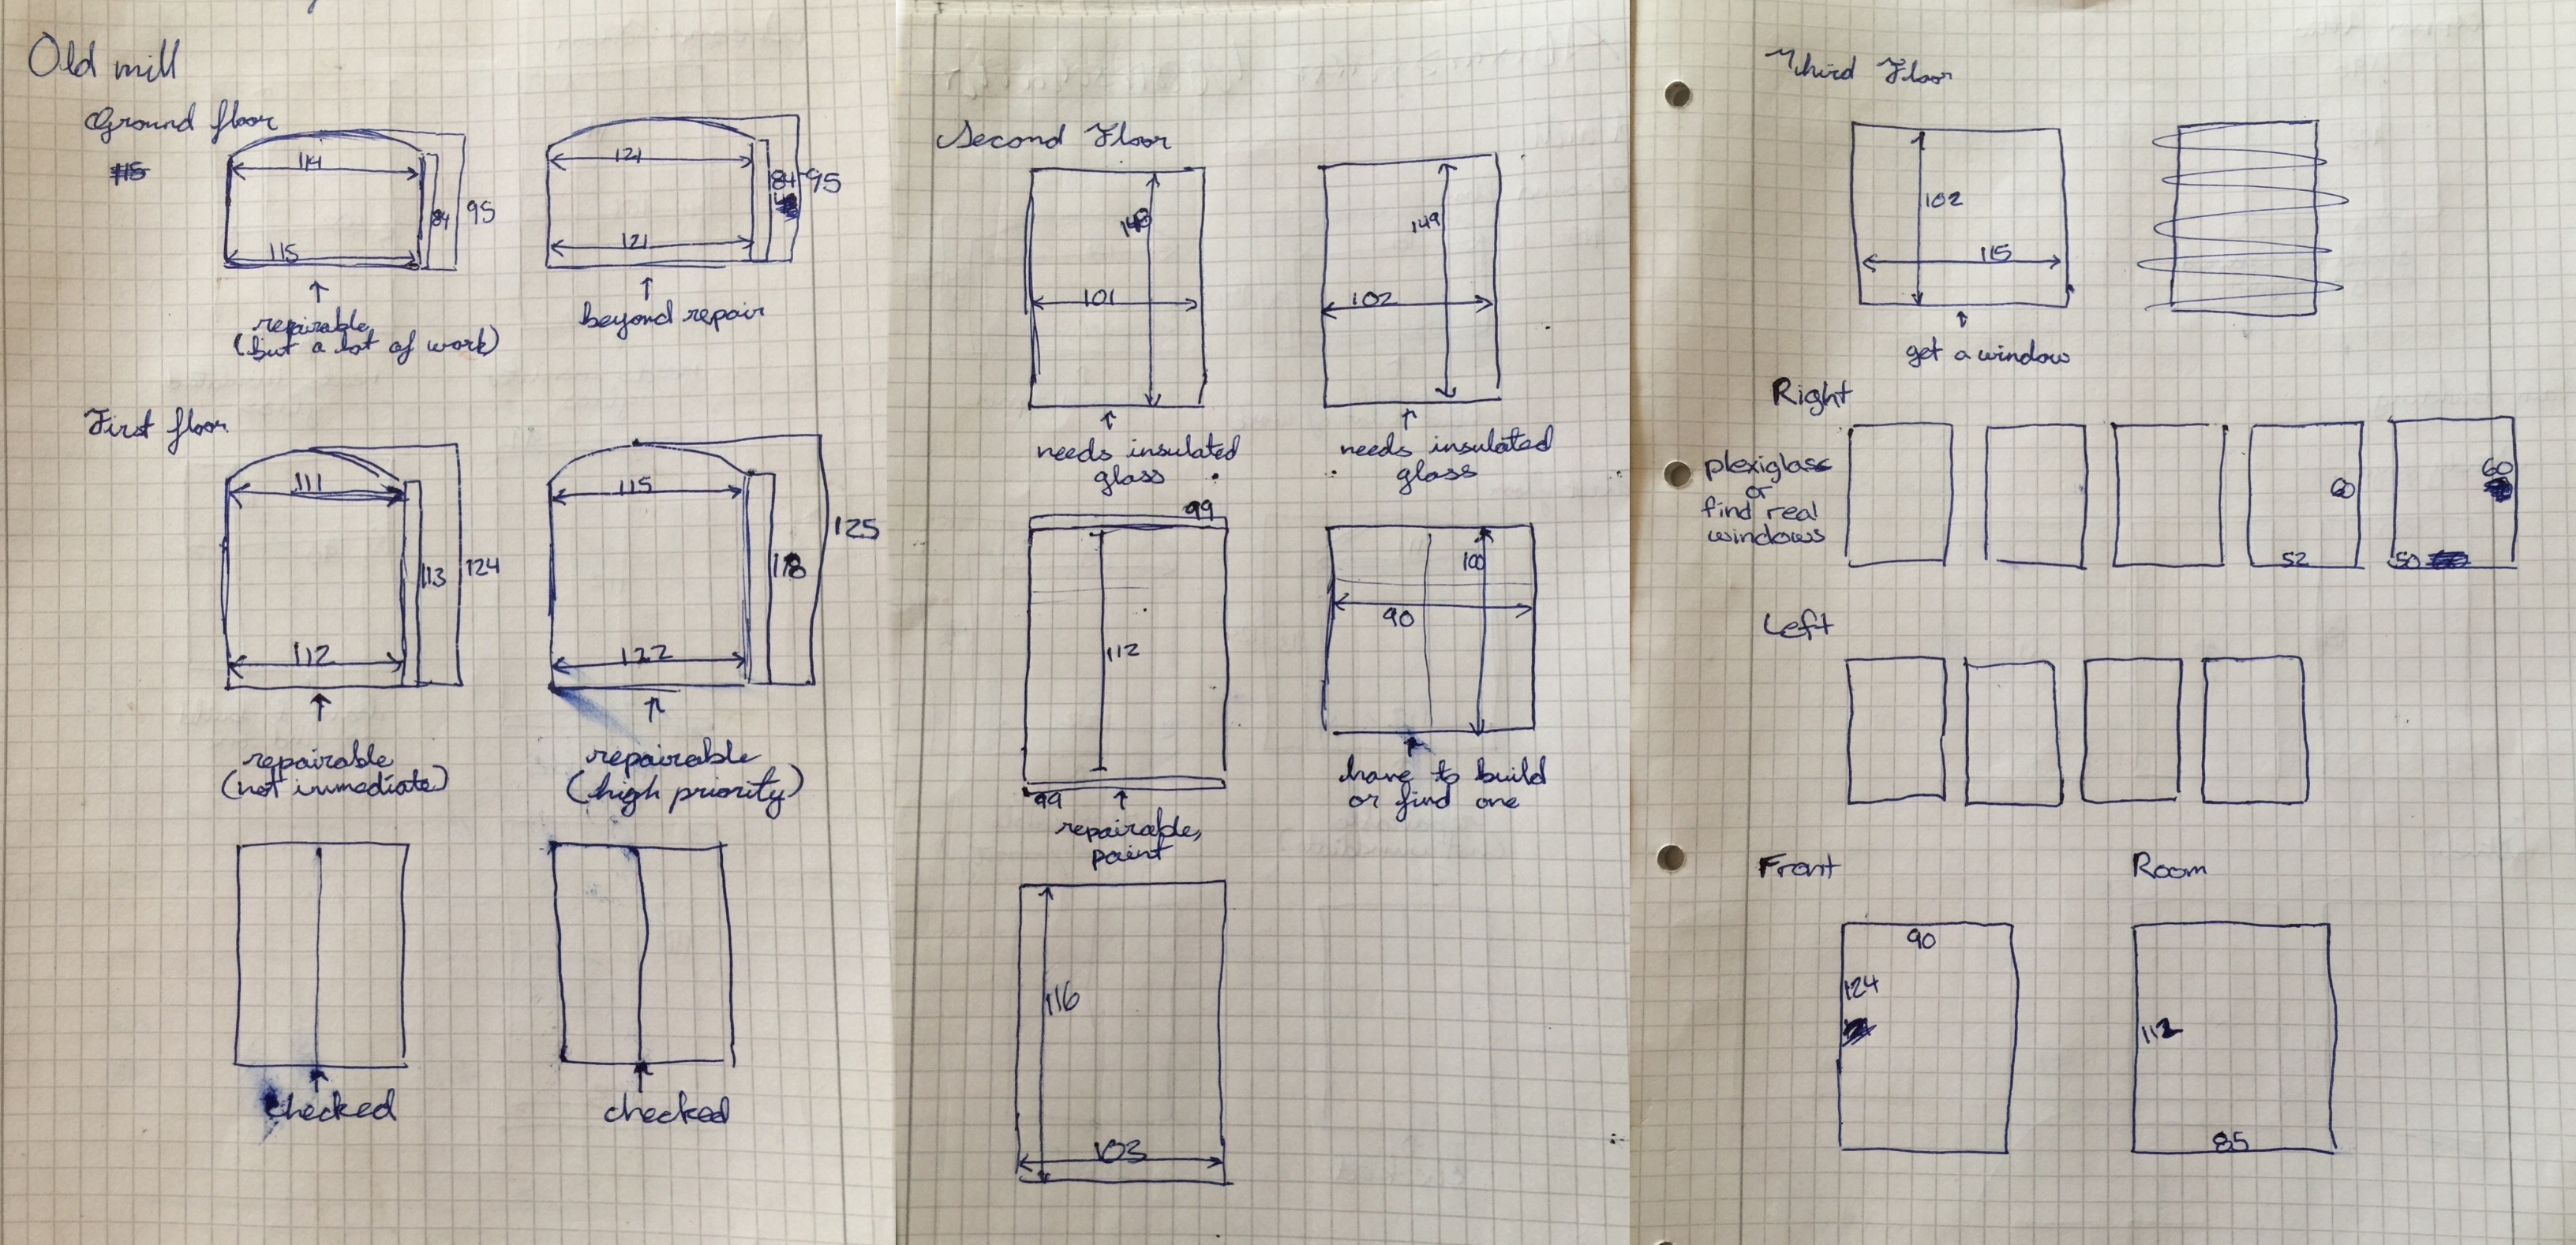 Old mill
Ground floor
115
114
115
84
95
repairable
(but a lot of work)
121
121
84
95
beyond repair
First floor
111
112
113
124
repairable
(not immediate)
115
122
118
125
repairable
(high priority)
checked
checked
Second Floor
101
needs insulated
glass
149
102
needs insulated
glass
99
112
99
repairable,
paint
100
90
have to build
or find one
116
103
Third Floor
102
115
get a window
Right
plexiglass
or
find real
windows
60
52
60
50
Left
Front
90
124
Room
112
85